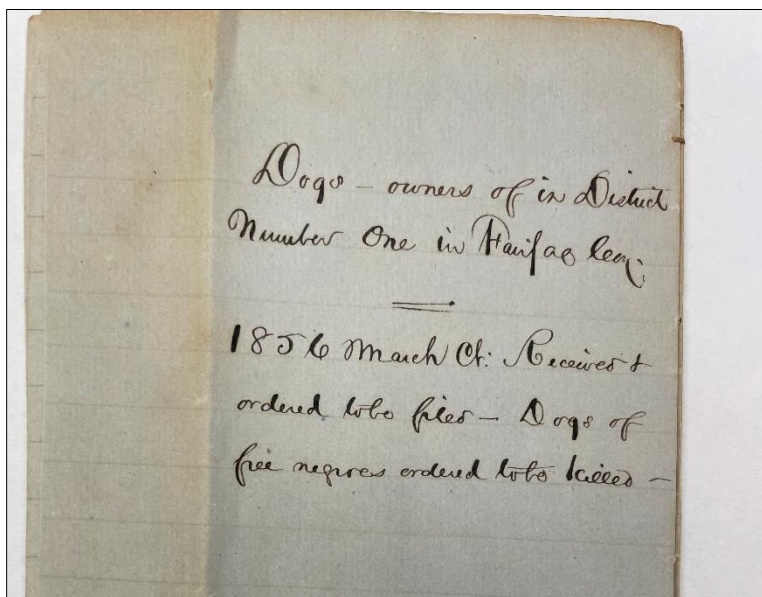 Dogs – owners of in District
Number One in Fairfax Coy.
1856 March Ct: Received &
ordered to be filed – Dogs of
free negroes ordered to be killed –